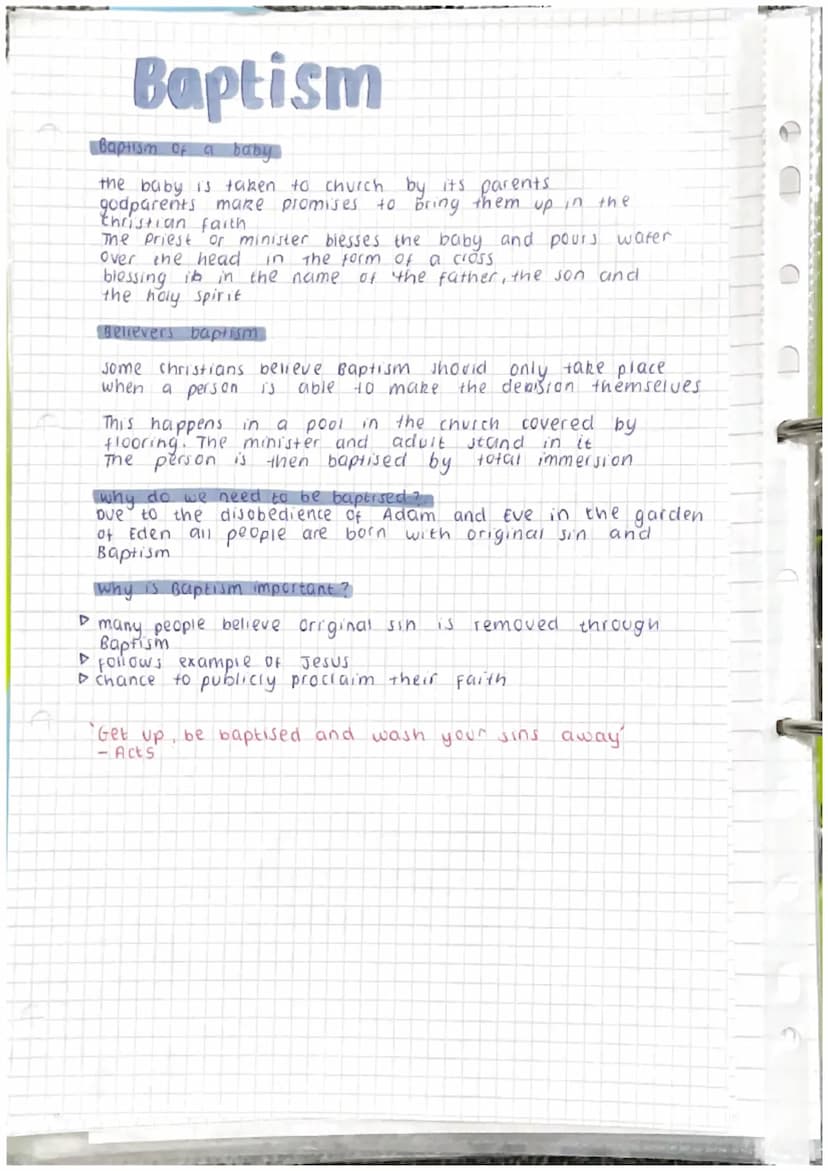 Baptism
Baptism of a baby
the baby is taken to church by its parents
godparents make promises to bring them up in the
christian faith
The priest or minister blesses the baby and pours water
over the head in the form of a cross
blessing it in the name of the father, the son and
the holy spirit
Believers baptism
some christians believe Baptism should only take place
when a person is able to make the decision themselves
This happens in a pool in the church covered by
flooring. The minister and adult stand in it
The person is then baptised by total immersion
why do we need to be baptised?
Due to the disobedience of Adam and Eve in the garden
of Eden all people are born with original sin and
Baptism
Why is Baptism important?
▷ many people believe original sin is removed through
Baptism
▷ follows example of Jesus
▷ chance to publicly proclaim their faith
'Get up, be baptised and wash your sins away'
- Acts